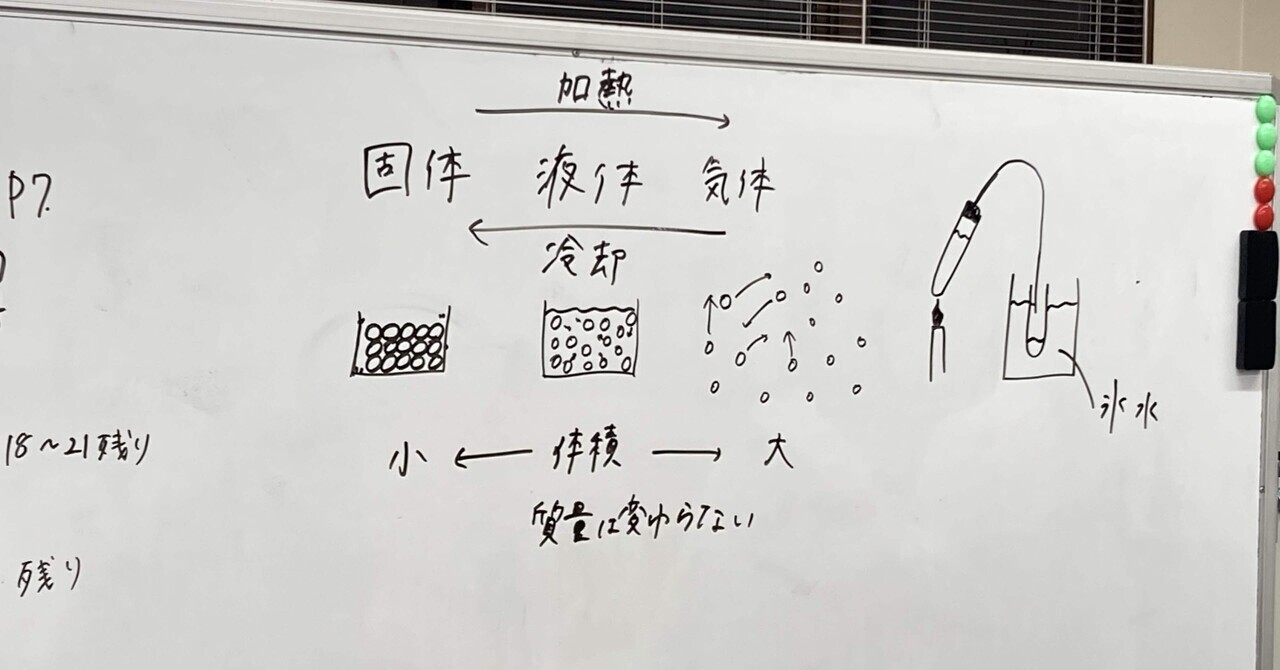 P7.
18〜21残り
残り
加熱
固体 液体 気体
冷却
小 ← 体積 → 大
質量は変わらない
氷水